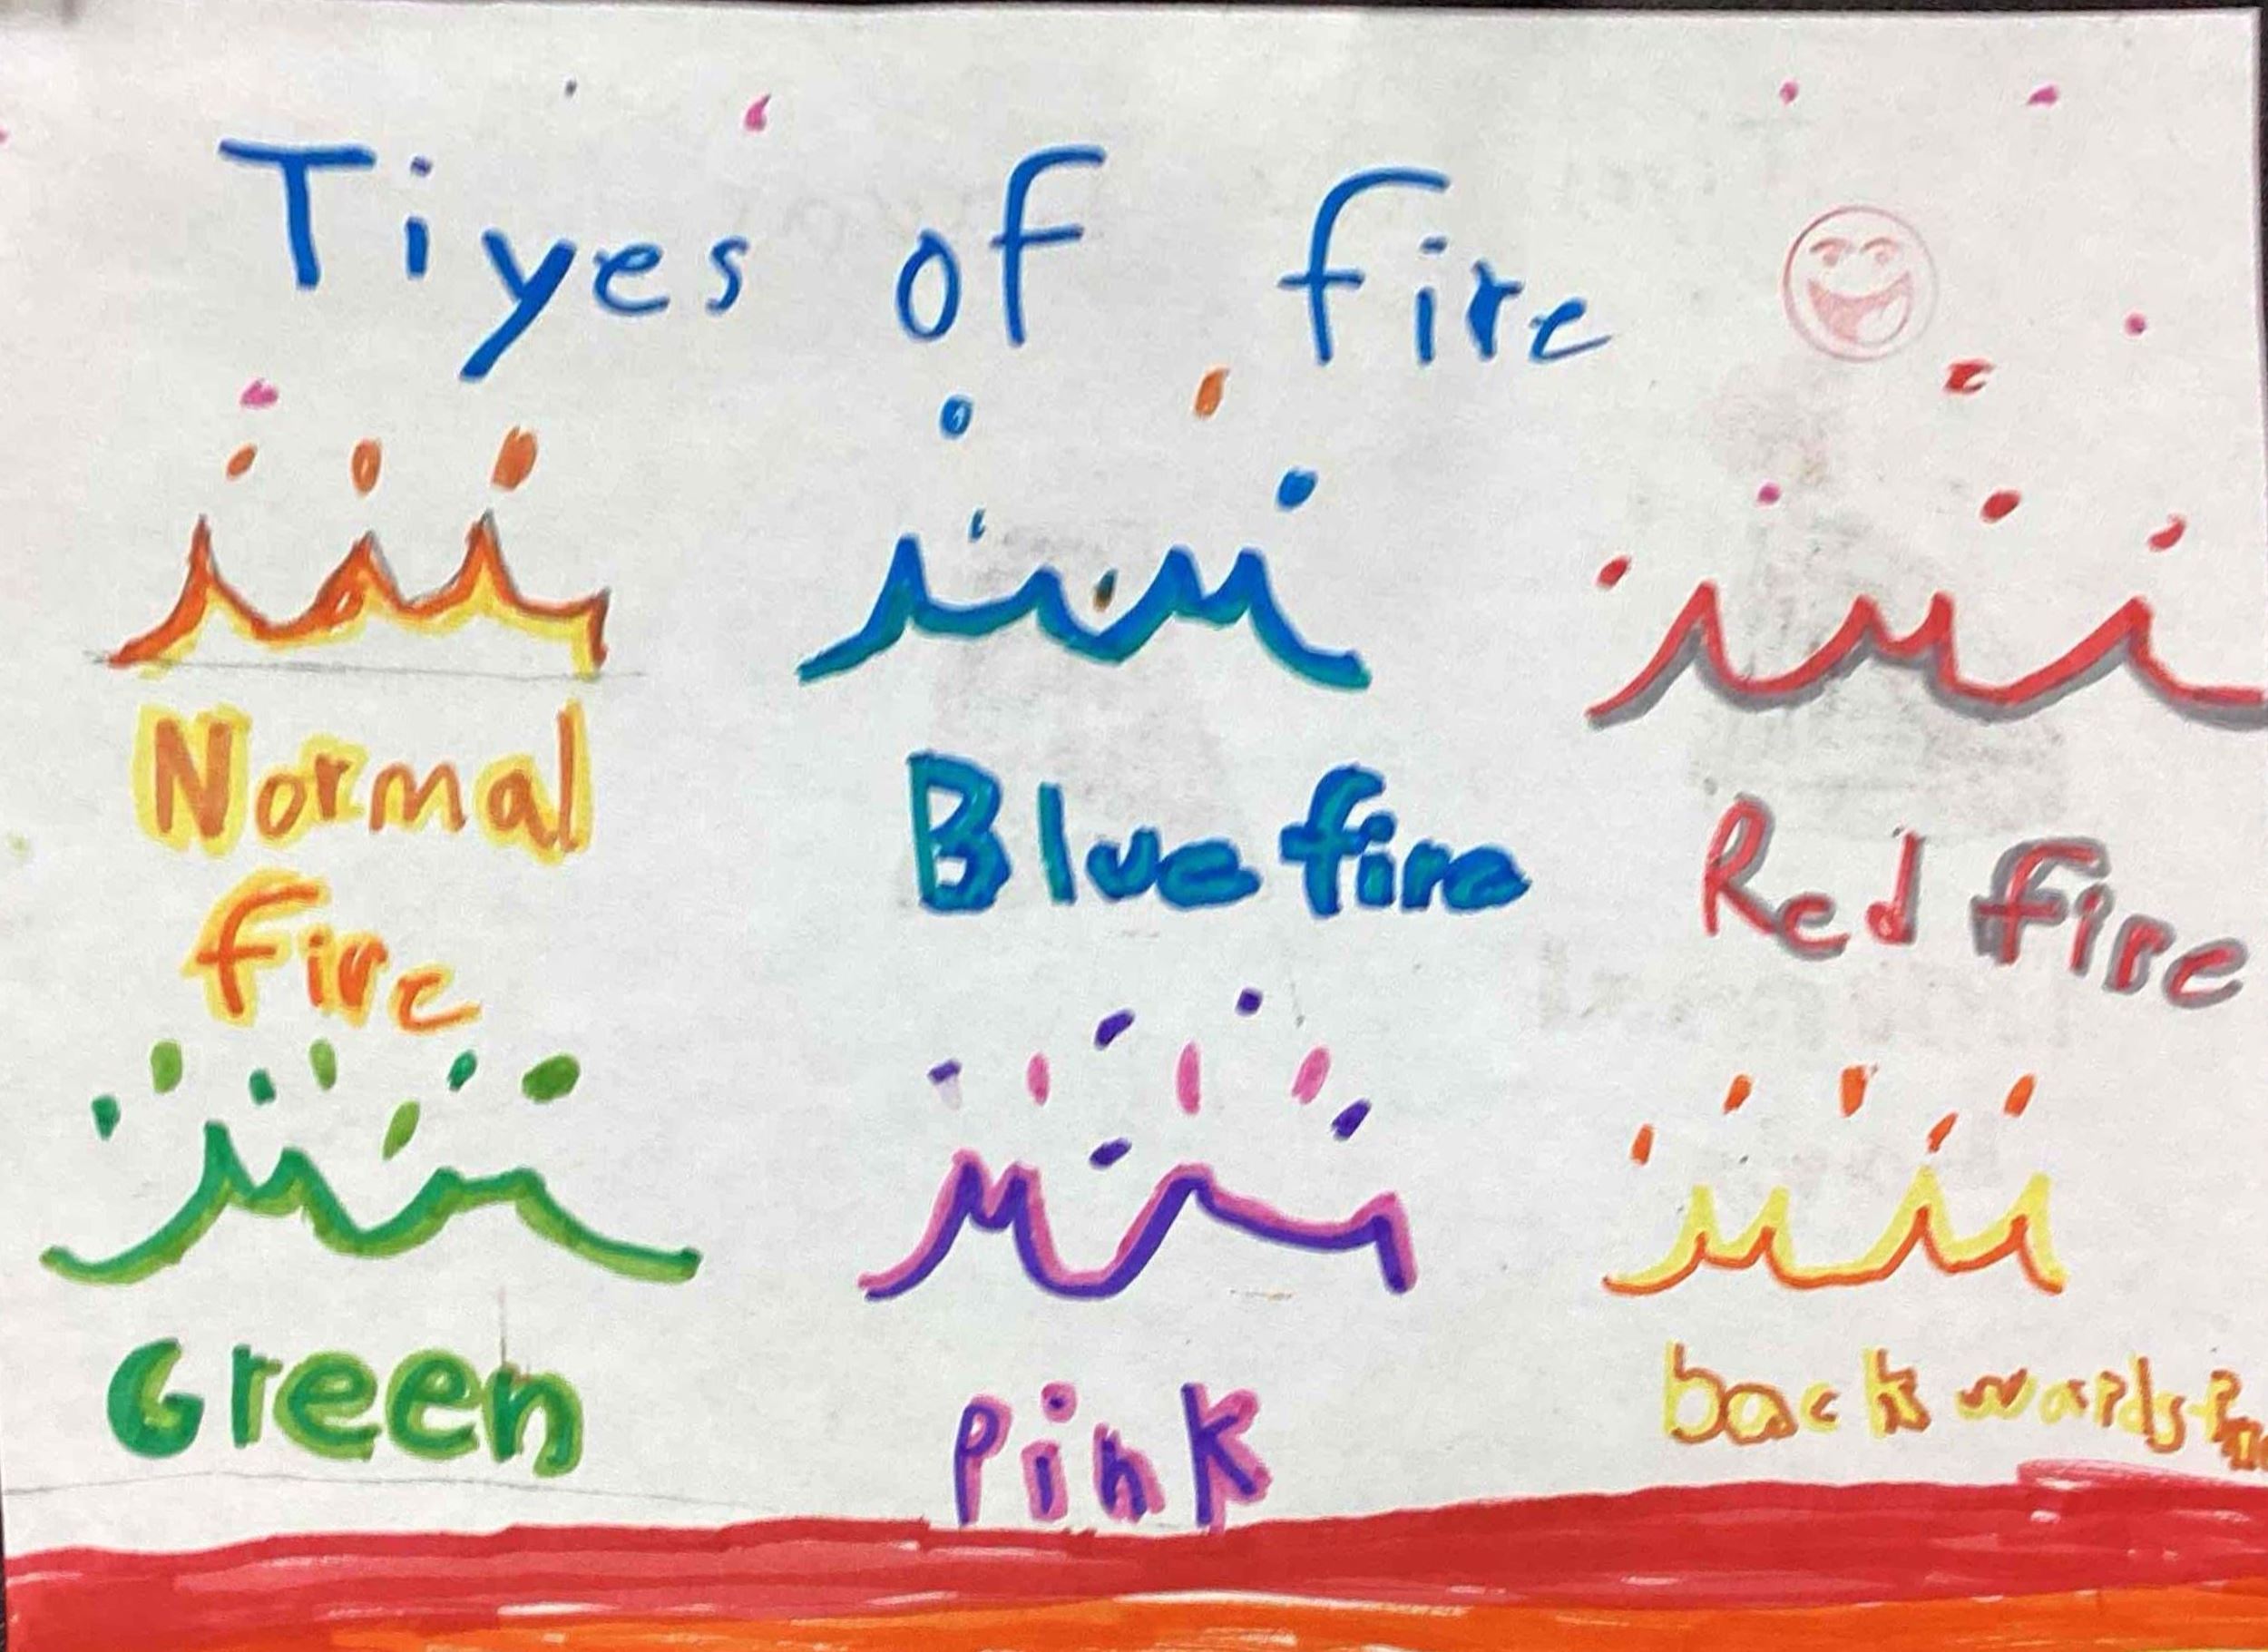 Tiyes of fire
Normal
fire
Blue fire
Red fire
Green
Pink
backwards